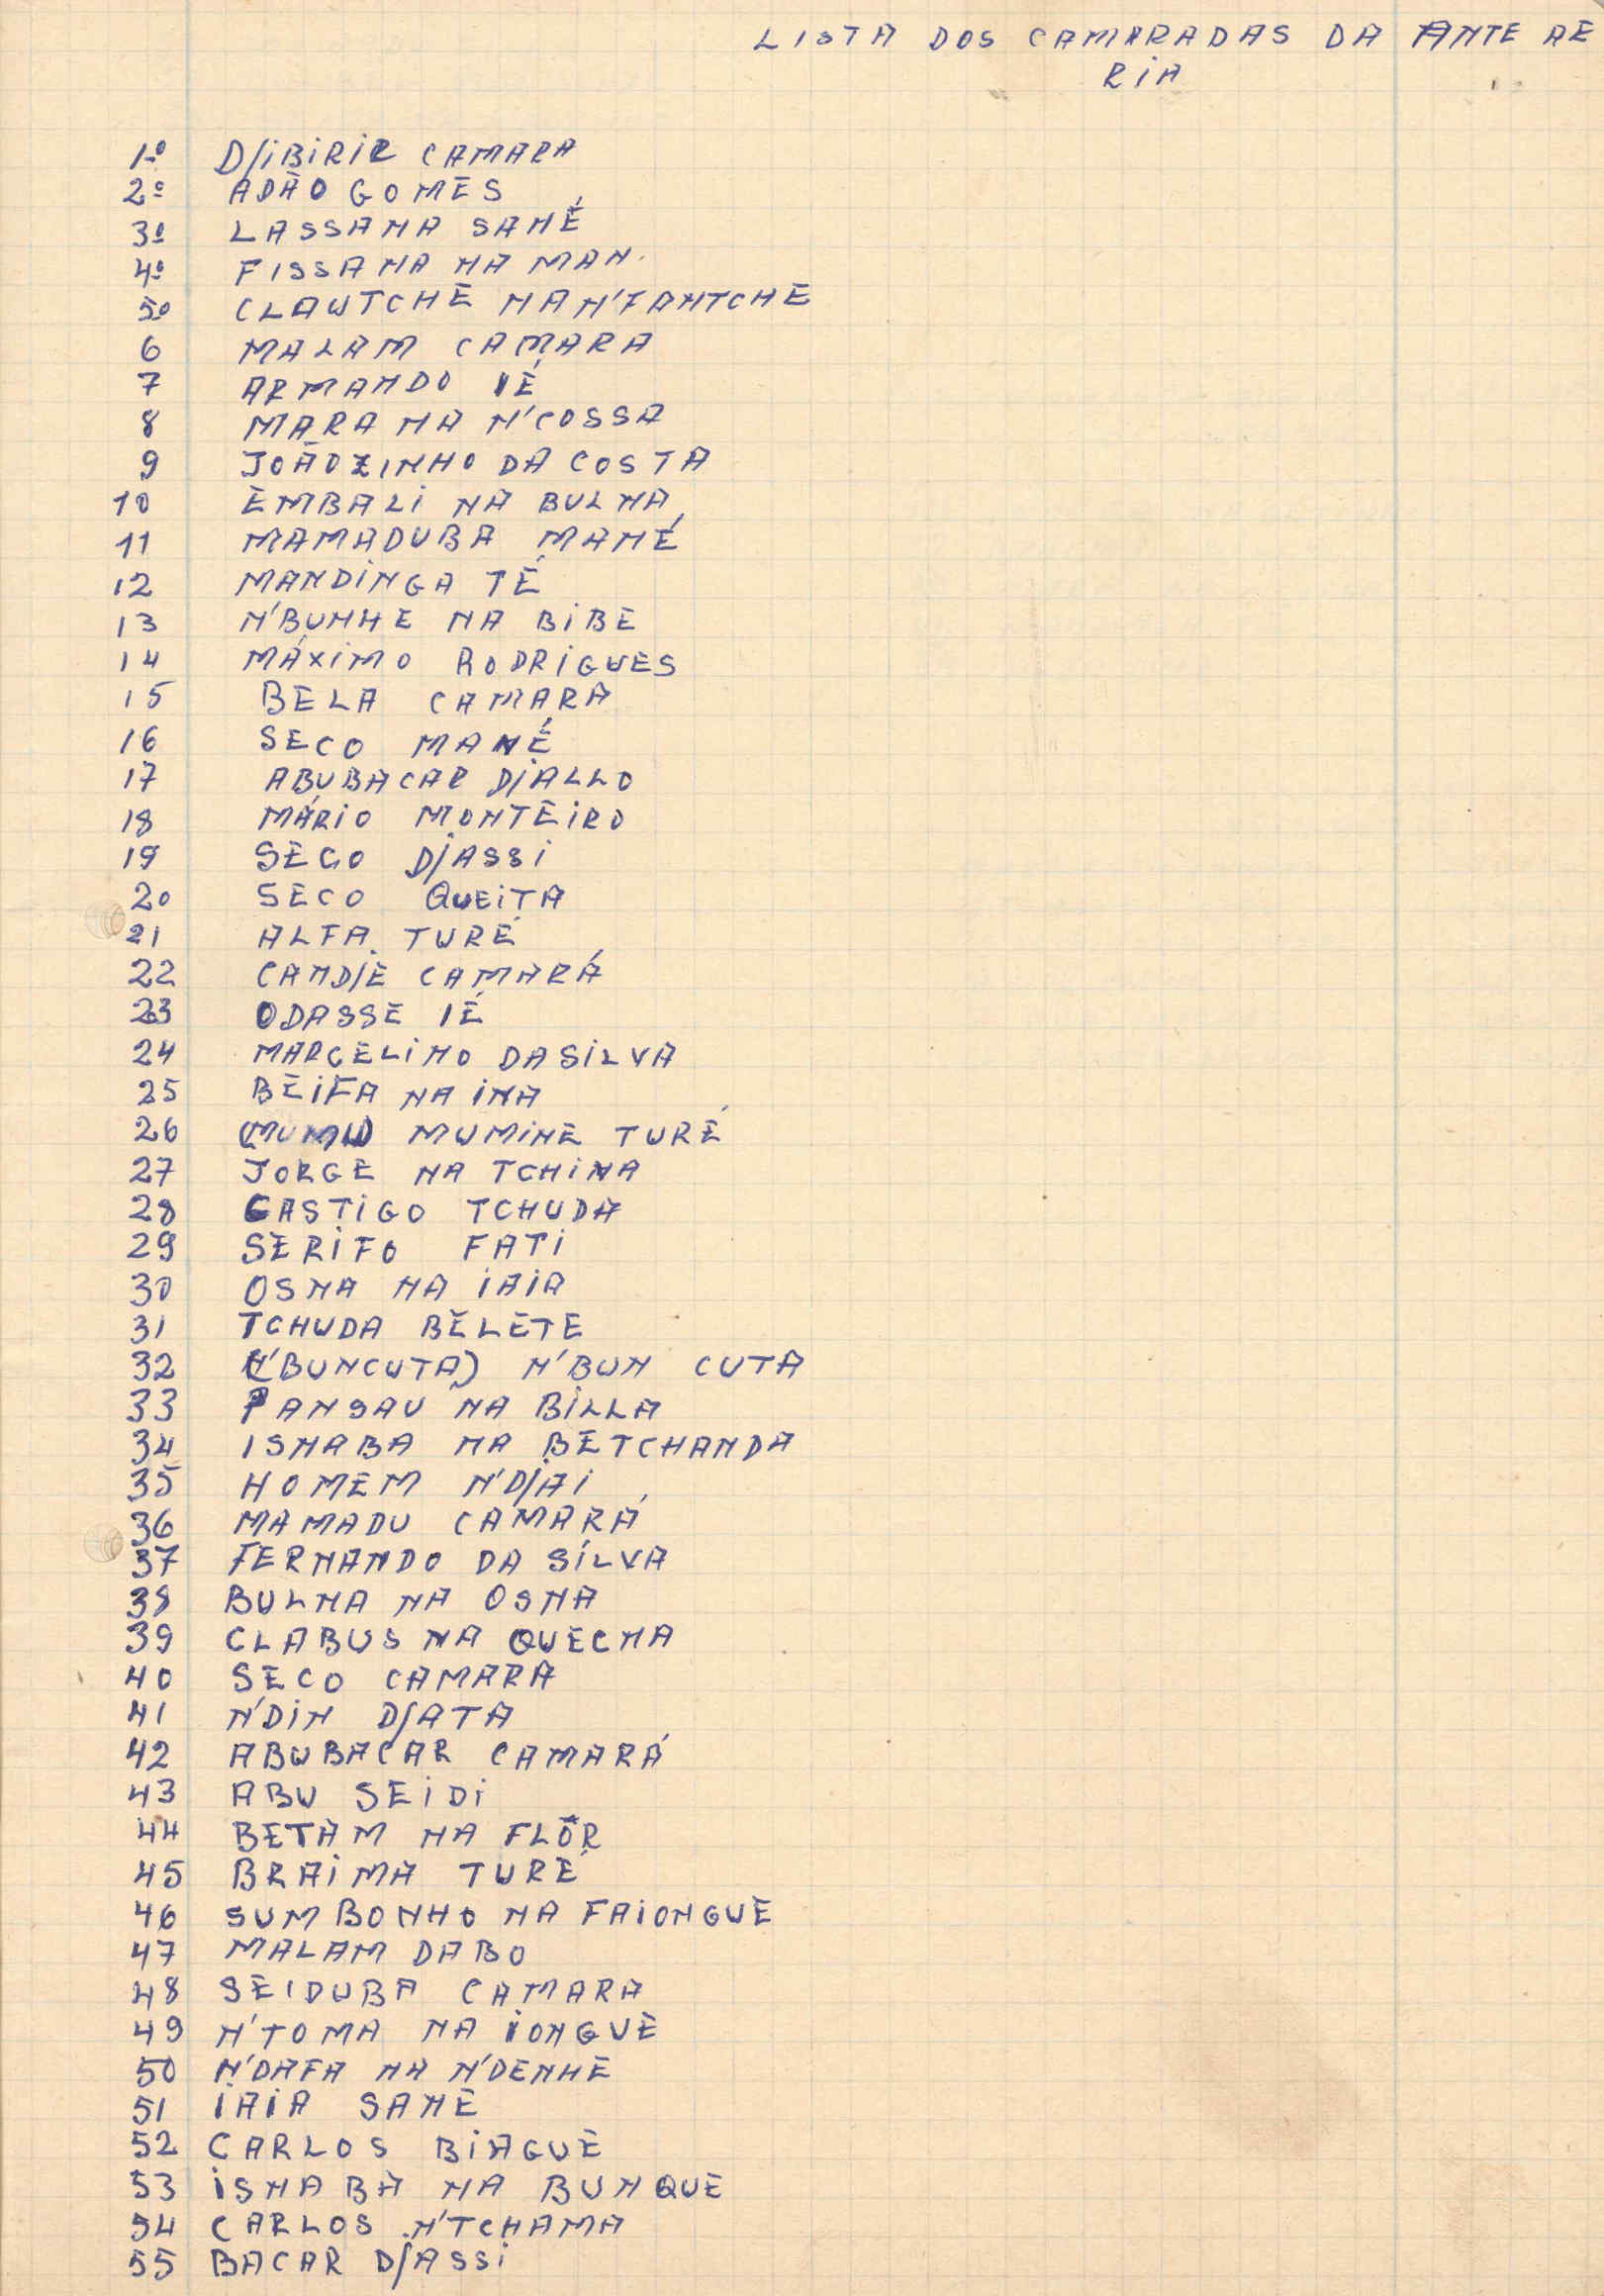 LISTA DOS CAMARADAS DA ANTE AE
RIA
1º DJIBIRIL CAMARA
2º ADÃO GOMES
3º LASSANA SANÉ
4º FISSANA NA MAN.
5º CLAUTCHE NA N'FANTCHE
6 MALAM CAMARA
7 ARMANDO IÉ
8 MARA NA N'COSSA
9 JOÃOZINHO DA COSTA
10 EMBALI NA BULNA
11 MAMADUBA MANÉ
12 MANDINGA TÉ
13 N'BUNHE NA BIBE
14 MÁXIMO RODRIGUES
15 BELA CAMARA
16 SECO MANÉ
17 ABUBACAR DJALLO
18 MÁRIO MONTEIRO
19 SECO DJASSI
20 SECO QUEITA
21 ALFA TURÉ
22 CANDJE CAMARÁ
23 ODASSE IÉ
24 MARCELINO DA SILVA
25 BEIFA NA INA
26 (MUMU) MUMINE TURÉ
27 JORGE NA TCHINA
28 CASTIGO TCHUDA
29 SERIFO FATI
30 OSNA NA IAIA
31 TCHUDA BELETE
32 (N'BUNCUTA) N'BUN CUTA
33 PANSAU NA BILLA
34 ISNABA NA BETCHANDA
35 HOMEM N'DJAI
36 MAMADU CAMARÁ
37 FERNANDO DA SILVA
38 BULNA NA OSNA
39 CLABUS NA QUECNA
40 SECO CAMARA
41 N'DIN DJATA
42 ABUBACAR CAMARÁ
43 ABU SEIDI
44 BETAM NA FLÔR
45 BRAIMA TURÉ
46 SUMBONHO NA FAIONGUE
47 MALAM DABO
48 SEIDUBA CAMARA
49 N'TOMA NA IONGUE
50 N'DAFA NA N'DENHE
51 IAIA SANE
52 CARLOS BIAGUE
53 ISNABA NA BUNQUE
54 CARLOS N'TCHAMA
55 BACAR DJASSI